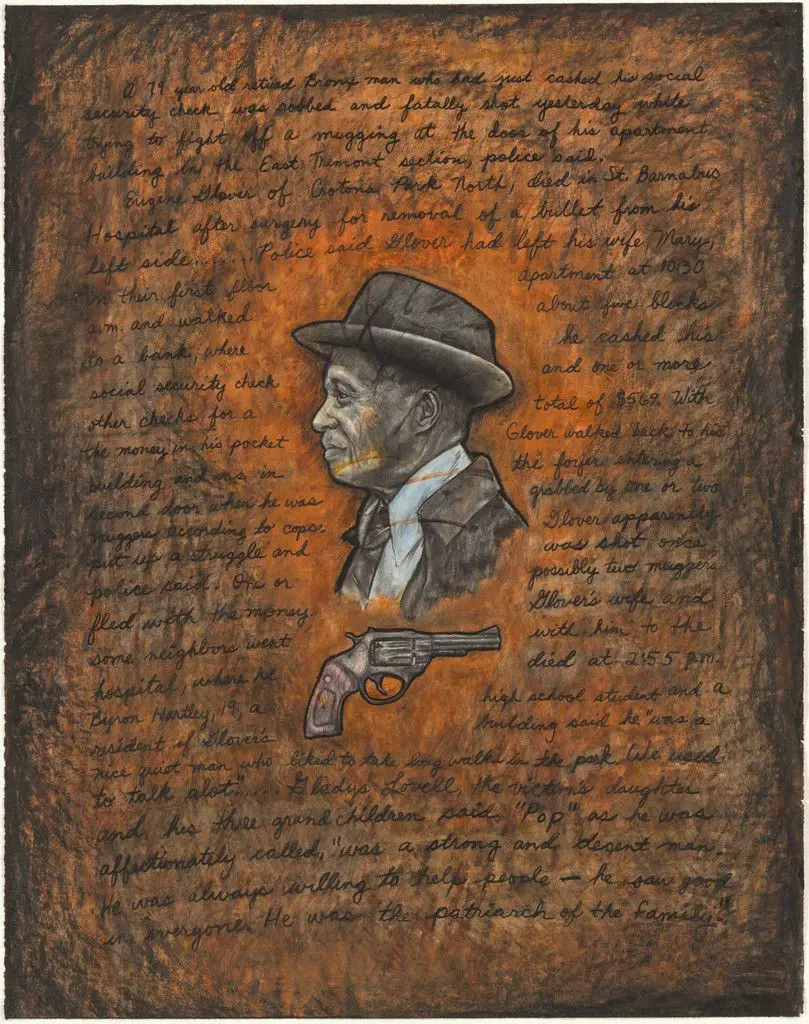 A 79 year old retired Bronx man who had just cashed his social
security check was robbed and fatally shot yesterday while
trying to fight off a mugging at the door of his apartment
building in the East Tremont section, police said.
Eugene Glover of Crotona Park North, died in St. Barnabus
Hospital after surgery for removal of a bullet from his
left side.......Police said Glover had left his wife, Mary,
in their first floor apartment at 10:30
a.m. and walked about five blocks
to a bank, where he cashed his
social security check and one or more
other checks for a total of $569. With
the money in his pocket Glover walked back to his
building and was in the foyer entering a
second door when he was grabbed by one or two
muggers according to cops. Glover apparently
put up a struggle and was shot once
police said. One or possibly two muggers
fled with the money. Glover's wife and
some neighbors went with him to the
hospital, where he died at 2:55 p.m.
Byron Hartley, 19, a high school student and a
resident of Glover's building said he "was a
nice quiet man who liked to take long walks in the park. We used
to talk alot"..... Gladys Lovell, the victim's daughter
and his three grandchildren said "Pop" as he was
affectionately called, "was a strong and decent man.
He was always willing to help people – he saw good
in everyone. He was the patriarch of the family."